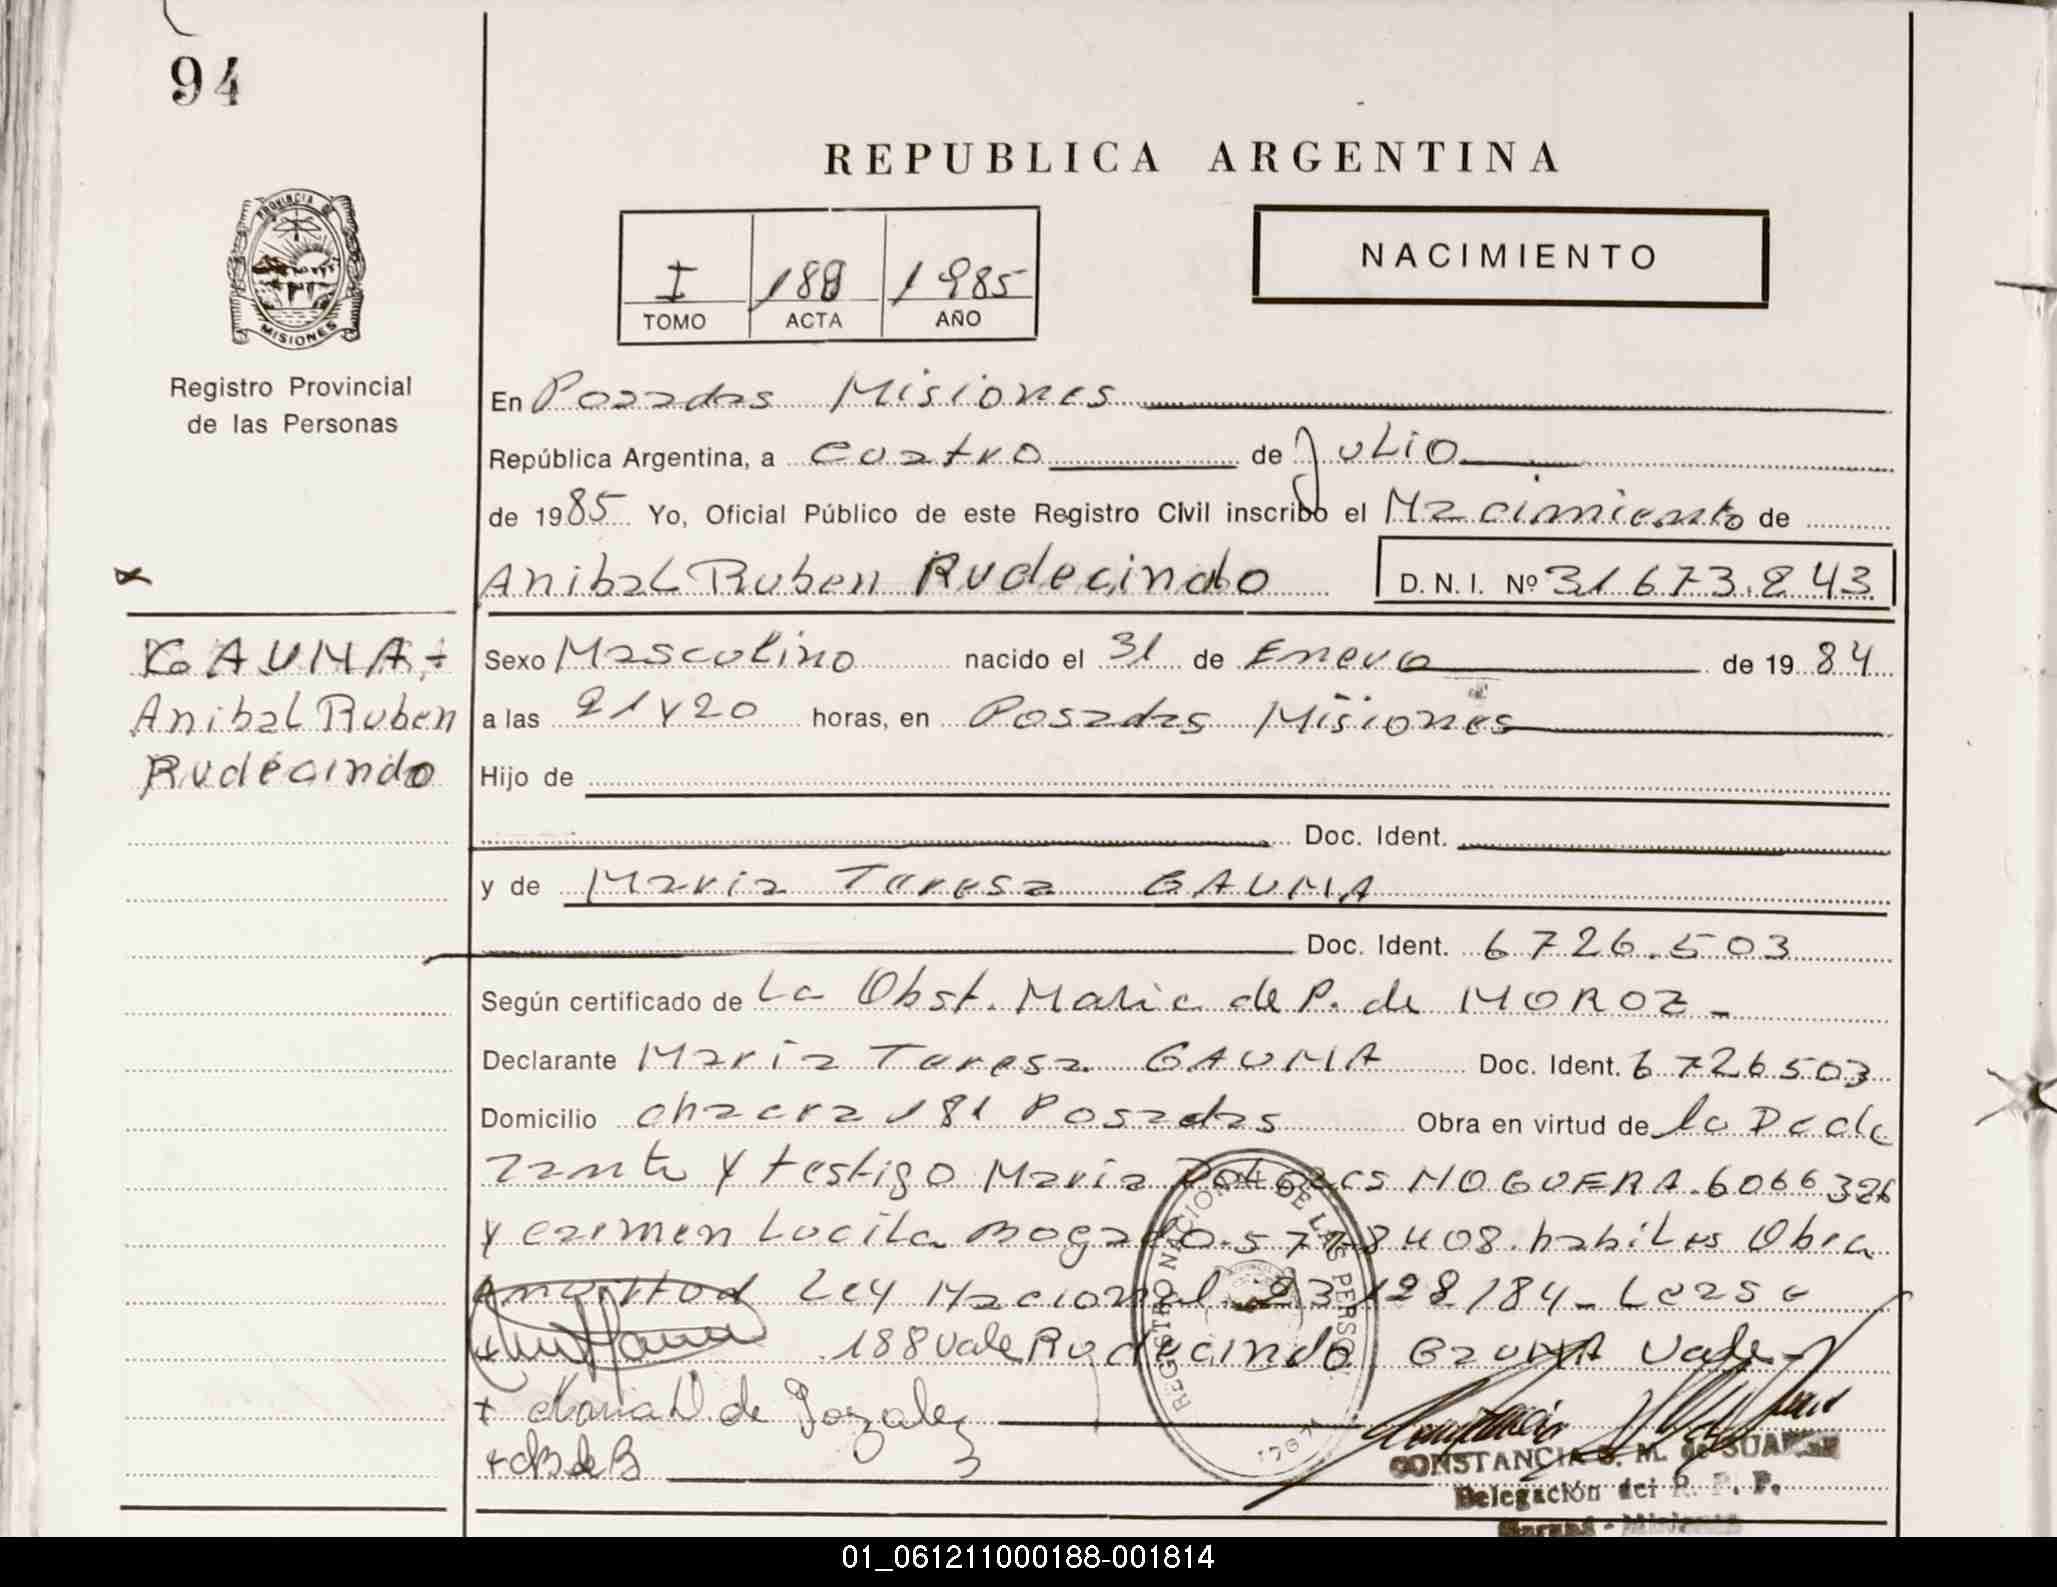 94
REPUBLICA ARGENTINA
PROVINCIA DE
MISIONES
Registro Provincial
de las Personas
I 188 1985
TOMO ACTA AÑO
NACIMIENTO
En Posadas Misiones
República Argentina, a cuatro de Julio
de 1985 Yo, Oficial Público de este Registro Civil inscribo el Nacimiento de
Anibal Ruben Rudecindo D. N. I. Nº 31 673.843
GAUNA
Anibal Ruben
Rudecindo
Sexo Masculino nacido el 31 de Enero de 19 84
a las 21 y 20 horas, en Posadas Misiones
Hijo de
Doc. Ident.
y de Maria Teresa GAUNA
Doc. Ident. 6 726.503
Según certificado de La Obst. Maria de P. de MOROZ
Declarante Maria Teresa GAUNA Doc. Ident. 6 726503
Domicilio chacra 181 Posadas Obra en virtud de la Decla
rante y testigo Maria Dolores NOGUERA. 6066326
y Carmen Lucila Bogado. 8408. habiles Obra
Ley Nacional 23128/84_ Leasa
188 vale Rudecindo Gauna Vale
+ Maria D. de Gozalez
+ B de B
REGISTRO NACIONAL DE LAS PERSO
CONSTANCIA S. M. de SUAREZ
Delegación del R. P. P.
01_061211000188-001814